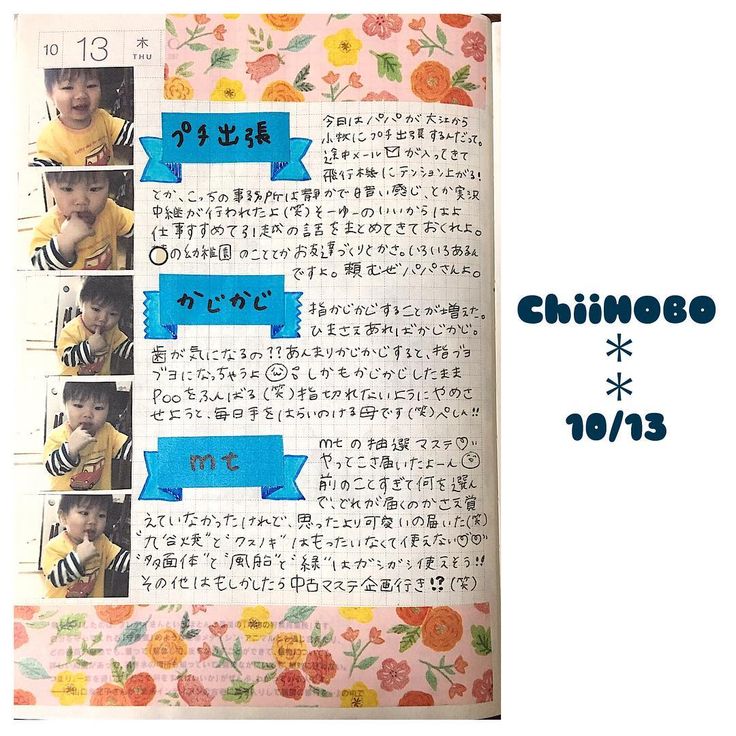 10 13 木
THU
プチ出張
今日はパパが大江から
小牧にプチ出張するんだって。
途中メール✉が入ってきて
飛行機にテンション上がる!
とか、こっちの事務所は静かで暗い感じ、とか実況
中継が行われたよ(笑)そーゆーのいいからはよ
仕事すすめて引越の話をまとめてきておくれよ。
の幼稚園のこととかお友達づくりとかさ。いろいろあるん
ですよ。頼むぜパパさんよ。
かじかじ
指かじかじすることが増えた。
ひまさえあればかじかじ。
歯が気になるの??あんまりかじかじすると、指ブヨ
ブヨになっちゃうよ しかもかじかじしたまま
Pooをふんばる(笑)指切れないようにやめさ
せようと、毎日手をはらいのける母です(笑)ぺしん!!
mt
mtの抽選マステ♡
やってこさ届いたよーん
前のことすぎて何を選ん
で、どれが届くのかさえ覚
えていなかったけれど、思ったより可愛いの届いた(笑)
"九谷焼"と"クスノキ"はもったいなくて使えない♡♡
"多面体"と"風船"と"緑"はガシガシ使えそう!!
その他はもしかしたら中古マステ企画行き!?(笑)
ChiiHOBO
*
*
10/13